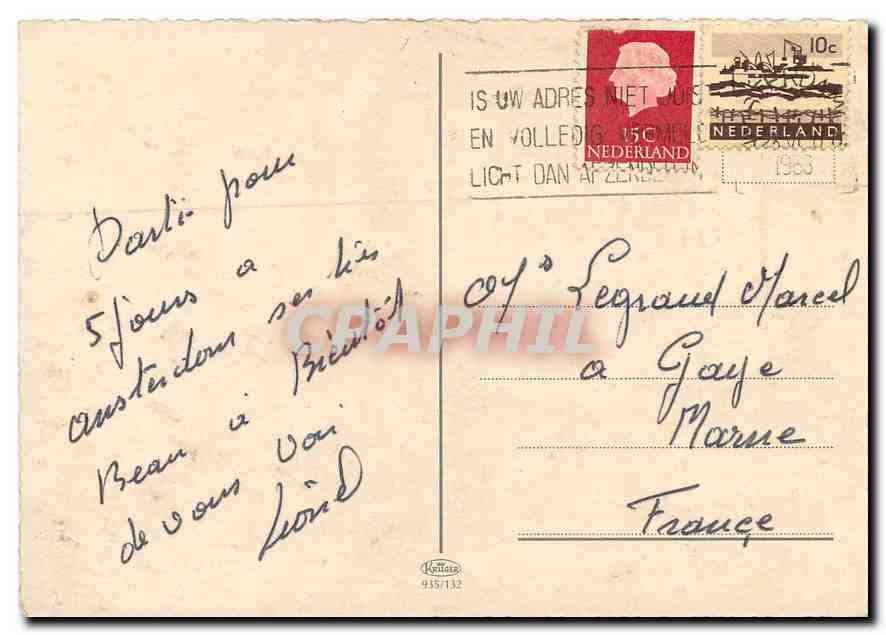 Parti pour
5 jours a
amsterdam ses tres
Beau à Bientôt
de vous voir
Lionel
IS UW ADRES NIET JUIS
EN VOLLEDIG VERMEL
LICHT DAN AFZENDE
1963
15 C
NEDERLAND
10c
NEDERLAND
Mr Legrand Marcel
a Gaye
Marne
France
CPAPHIL
KRÜGER
935/132